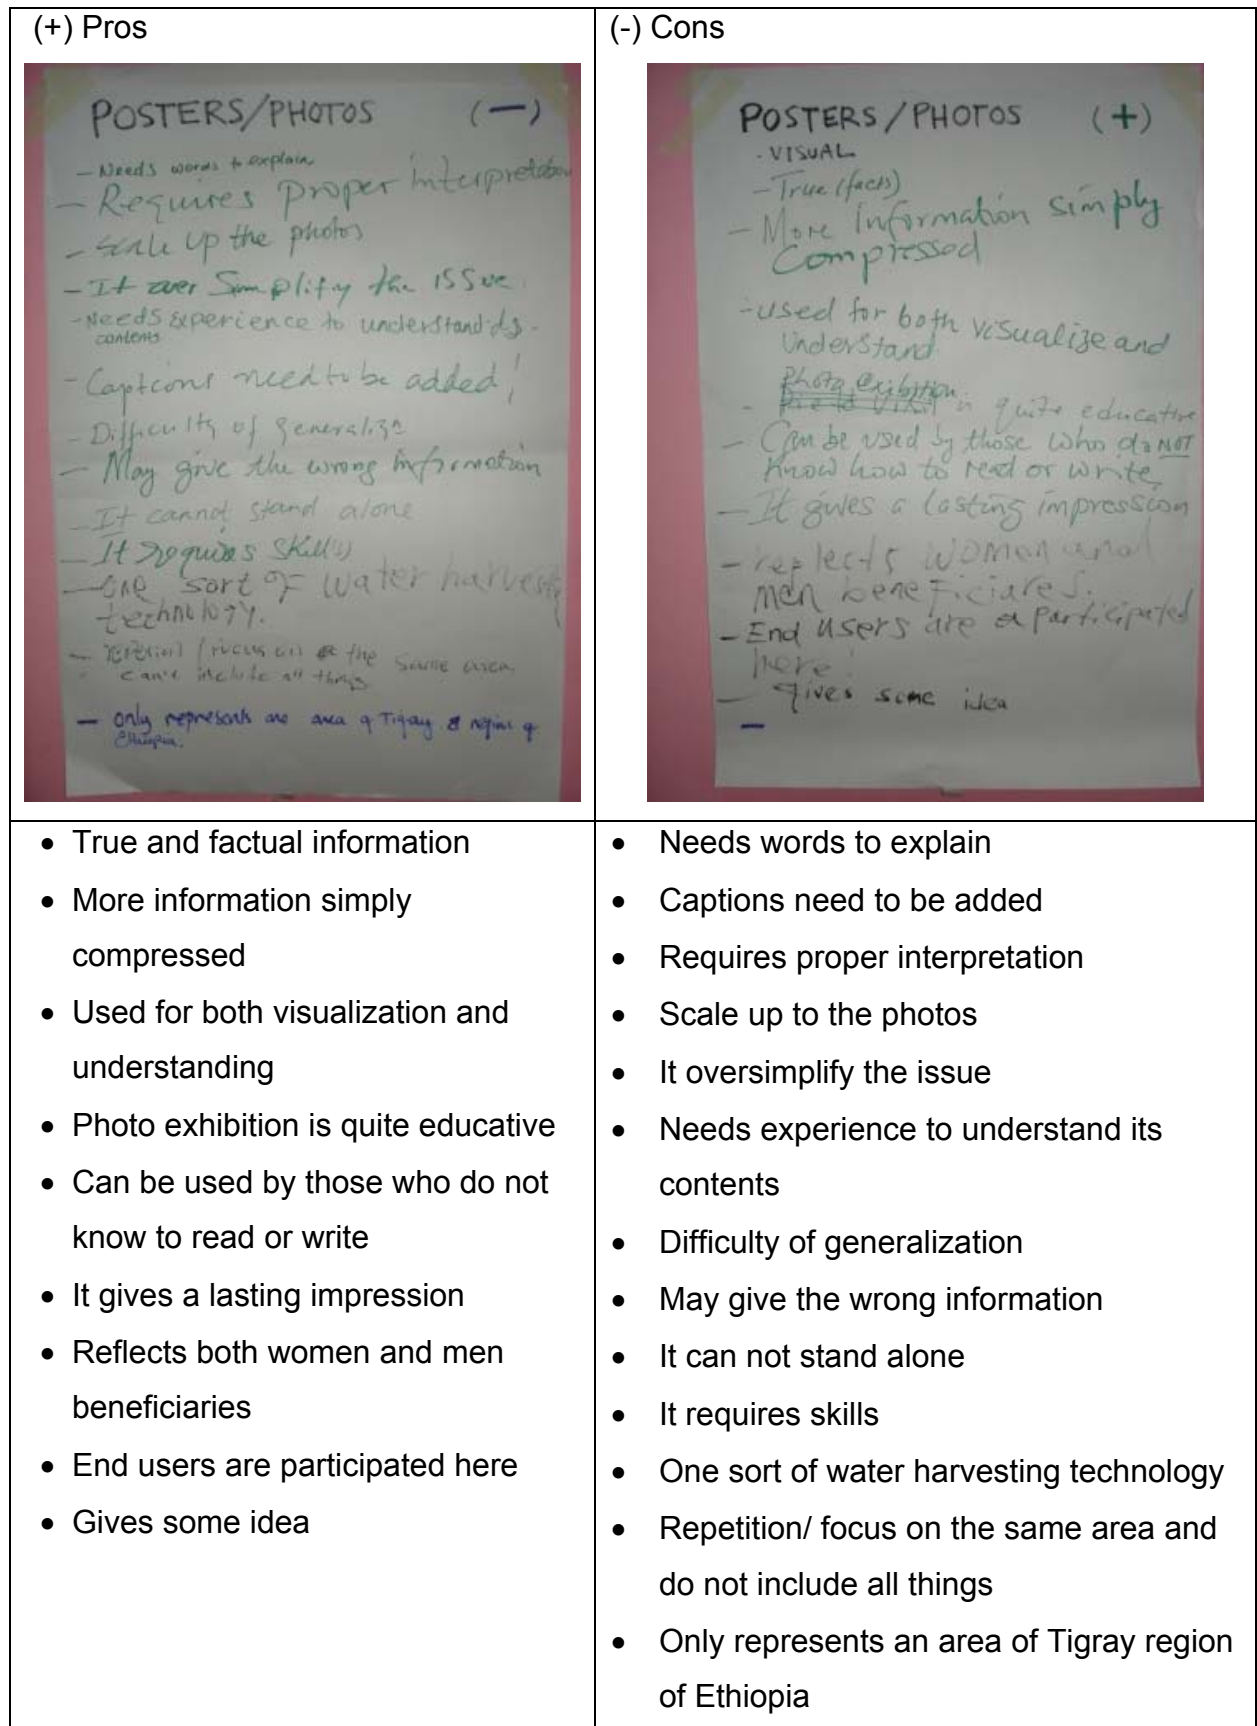 (+) Pros
POSTERS/PHOTOS (—)
- Needs words to explain
- Requires proper interpretation
- Scale up the photos
- It over Simplify the issue.
- Needs experience to understand
contents
- Captions need to be added!
- Difficulty of generalize
- May give the wrong information
- It cannot stand alone
- It requires Skill(s)
- one sort of water harvesting
technology.
- focus on the same area
can't include all things
- only represents one area of Tigray region of
Ethiopia.
(-) Cons
POSTERS/PHOTOS (+)
- VISUAL
- True (facts)
- More information simply
Compressed
- used for both visualize and
Understand.
Photo Exibition
- is quite educative
- Can be used by those who do NOT
know how to read or write
- It gives a lasting impression
- reflects women and
men beneficiares.
- End users are participated
here!
- gives some idea
-
• True and factual information
• More information simply
compressed
• Used for both visualization and
understanding
• Photo exhibition is quite educative
• Can be used by those who do not
know to read or write
• It gives a lasting impression
• Reflects both women and men
beneficiaries
• End users are participated here
• Gives some idea
• Needs words to explain
• Captions need to be added
• Requires proper interpretation
• Scale up to the photos
• It oversimplify the issue
• Needs experience to understand its
contents
• Difficulty of generalization
• May give the wrong information
• It can not stand alone
• It requires skills
• One sort of water harvesting technology
• Repetition/ focus on the same area and
do not include all things
• Only represents an area of Tigray region
of Ethiopia